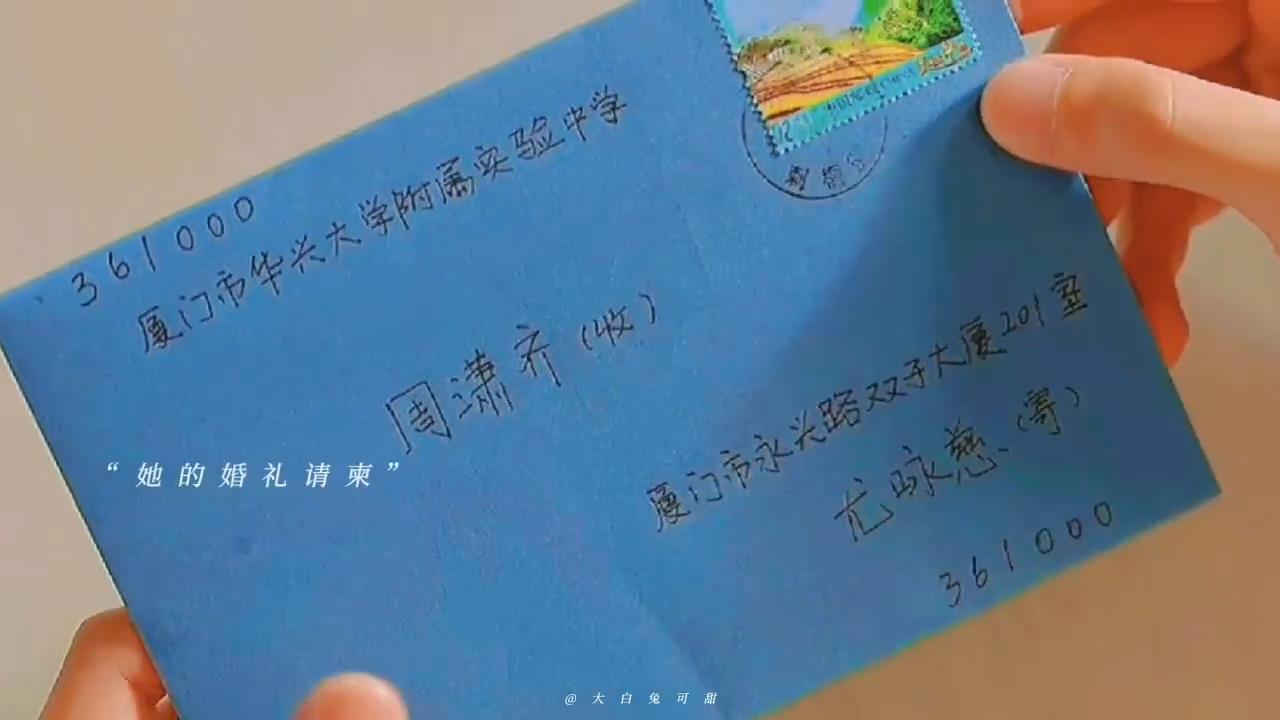 361000
厦门市华兴大学附属实验中学
周潇齐（收）
厦门市永兴路双子大厦201室
尤咏慈（寄）
361000
“她的婚礼请柬”
@大白兔可甜